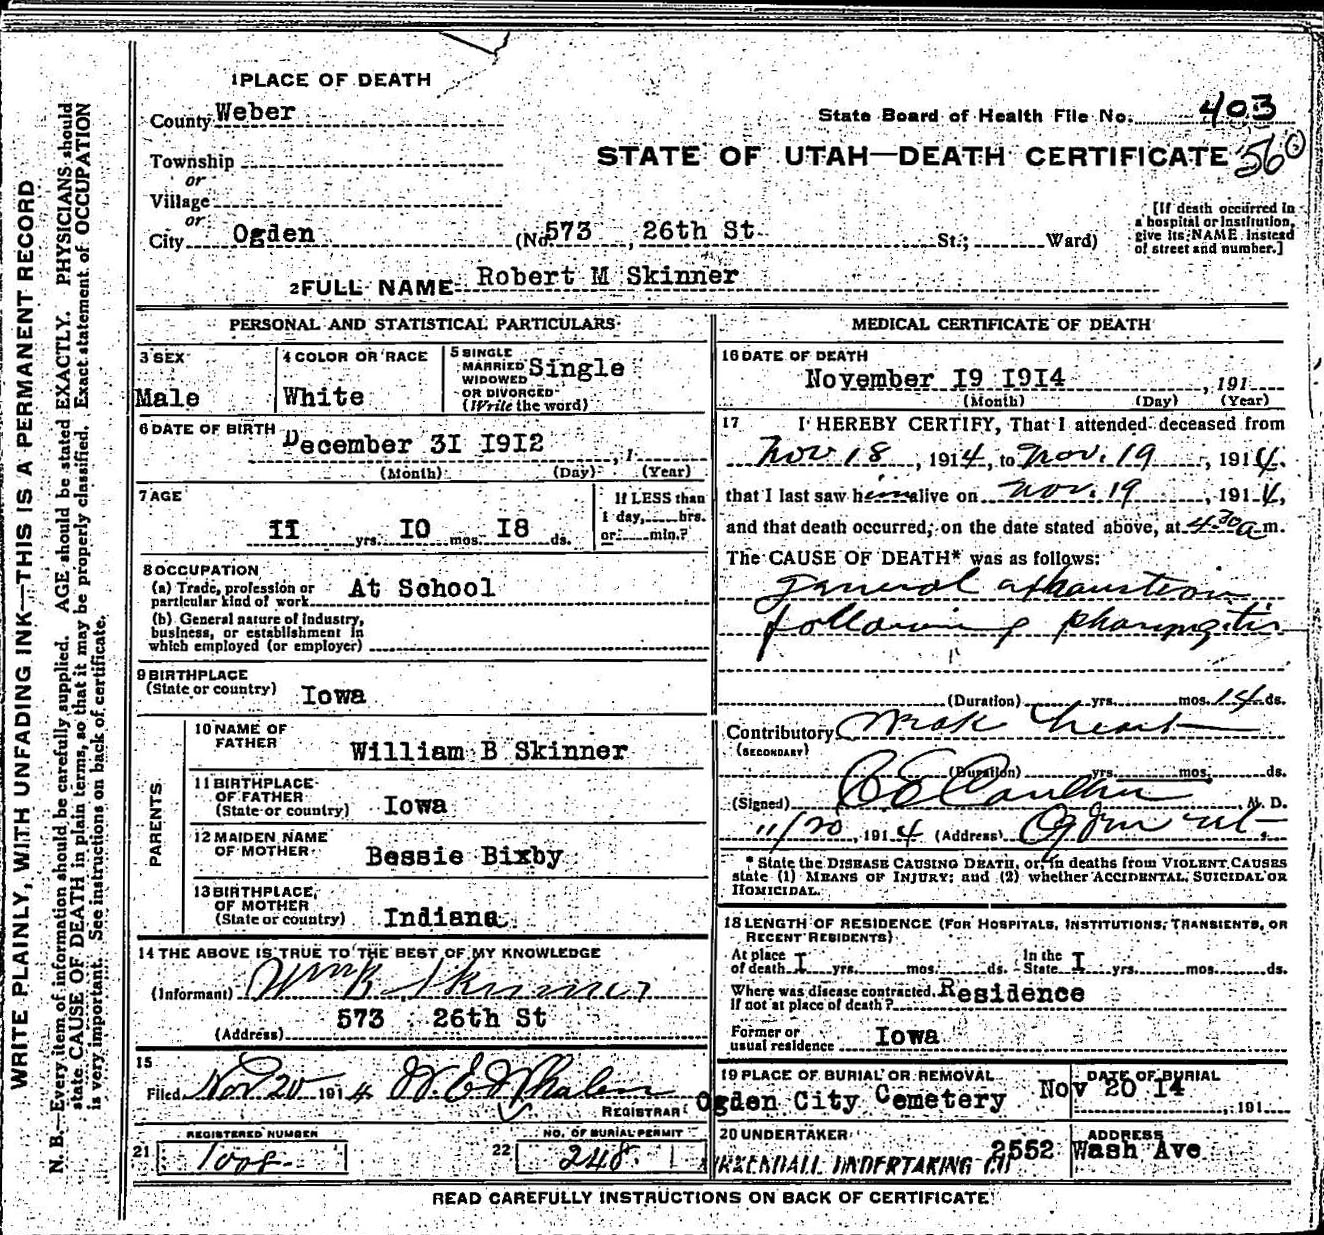 WRITE PLAINLY, WITH UNFADING INK—THIS IS A PERMANENT RECORD
N. B.—Every item of information should be carefully supplied. AGE should be stated EXACTLY. PHYSICIANS should
state CAUSE OF DEATH in plain terms, so that it may be properly classified. Exact statement of OCCUPATION
is very important. See instructions on back of certificate.
1 PLACE OF DEATH
County Weber
State Board of Health File No. 403
Township
or
STATE OF UTAH—DEATH CERTIFICATE 560
Village
or
City Ogden (No. 573, 26th St St.; Ward)
[If death occurred in
a hospital or institution,
give its NAME instead
of street and number.]
2 FULL NAME Robert M Skinner
PERSONAL AND STATISTICAL PARTICULARS
3 SEX
Male
4 COLOR OR RACE
White
5 SINGLE
MARRIED
WIDOWED
OR DIVORCED
(Write the word)
Single
6 DATE OF BIRTH December 3I I9I2, 1
(Month) (Day) (Year)
7 AGE
II yrs. IO mos. I8 ds.
If LESS than
1 day, hrs.
or min.?
8 OCCUPATION
(a) Trade, profession or
particular kind of work At School
(b) General nature of industry,
business, or establishment in
which employed (or employer)
9 BIRTHPLACE
(State or country) Iowa
PARENTS
10 NAME OF
FATHER
William B Skinner
11 BIRTHPLACE
OF FATHER
(State or country) Iowa
12 MAIDEN NAME
OF MOTHER Bessie Bixby
13 BIRTHPLACE,
OF MOTHER
(State or country) Indiana
14 THE ABOVE IS TRUE TO THE BEST OF MY KNOWLEDGE
(Informant) Wm B. Skinner
(Address) 573 26th St
15
Filed Nov 20 1914 W. E. Whalen
REGISTRAR
REGISTERED NUMBER
21 1008
NO. OF BURIAL PERMIT
22 248
MEDICAL CERTIFICATE OF DEATH
16 DATE OF DEATH
November I9 I9I4, 191
(Month) (Day) (Year)
17 I HEREBY CERTIFY, That I attended deceased from
Nov 18, 1914, to Nov. 19, 1914,
that I last saw him alive on Nov. 19, 1914,
and that death occurred, on the date stated above, at 4:30 a m.
The CAUSE OF DEATH* was as follows:
General exhaustion
following pharyngitis
(Duration) yrs. mos. 14 ds.
Contributory Weak heart
(SECONDARY)
(Duration) yrs. mos. ds.
(Signed) M. D.
11/20, 1914 (Address) Ogden Ut
* State the DISEASE CAUSING DEATH, or, in deaths from VIOLENT CAUSES
state (1) MEANS OF INJURY; and (2) whether ACCIDENTAL, SUICIDAL OR
HOMICIDAL.
18 LENGTH OF RESIDENCE (FOR HOSPITALS, INSTITUTIONS, TRANSIENTS, OR
RECENT RESIDENTS)
At place
of death I yrs. mos. ds.
In the
State I yrs. mos. ds.
Where was disease contracted,
if not at place of death? Residence
Former or
usual residence Iowa
19 PLACE OF BURIAL OR REMOVAL
Ogden City Cemetery
DATE OF BURIAL
Nov 20 I4, 191
20 UNDERTAKER
KIRKENDALL UNDERTAKING CO
ADDRESS
2552 Wash Ave
READ CAREFULLY INSTRUCTIONS ON BACK OF CERTIFICATE